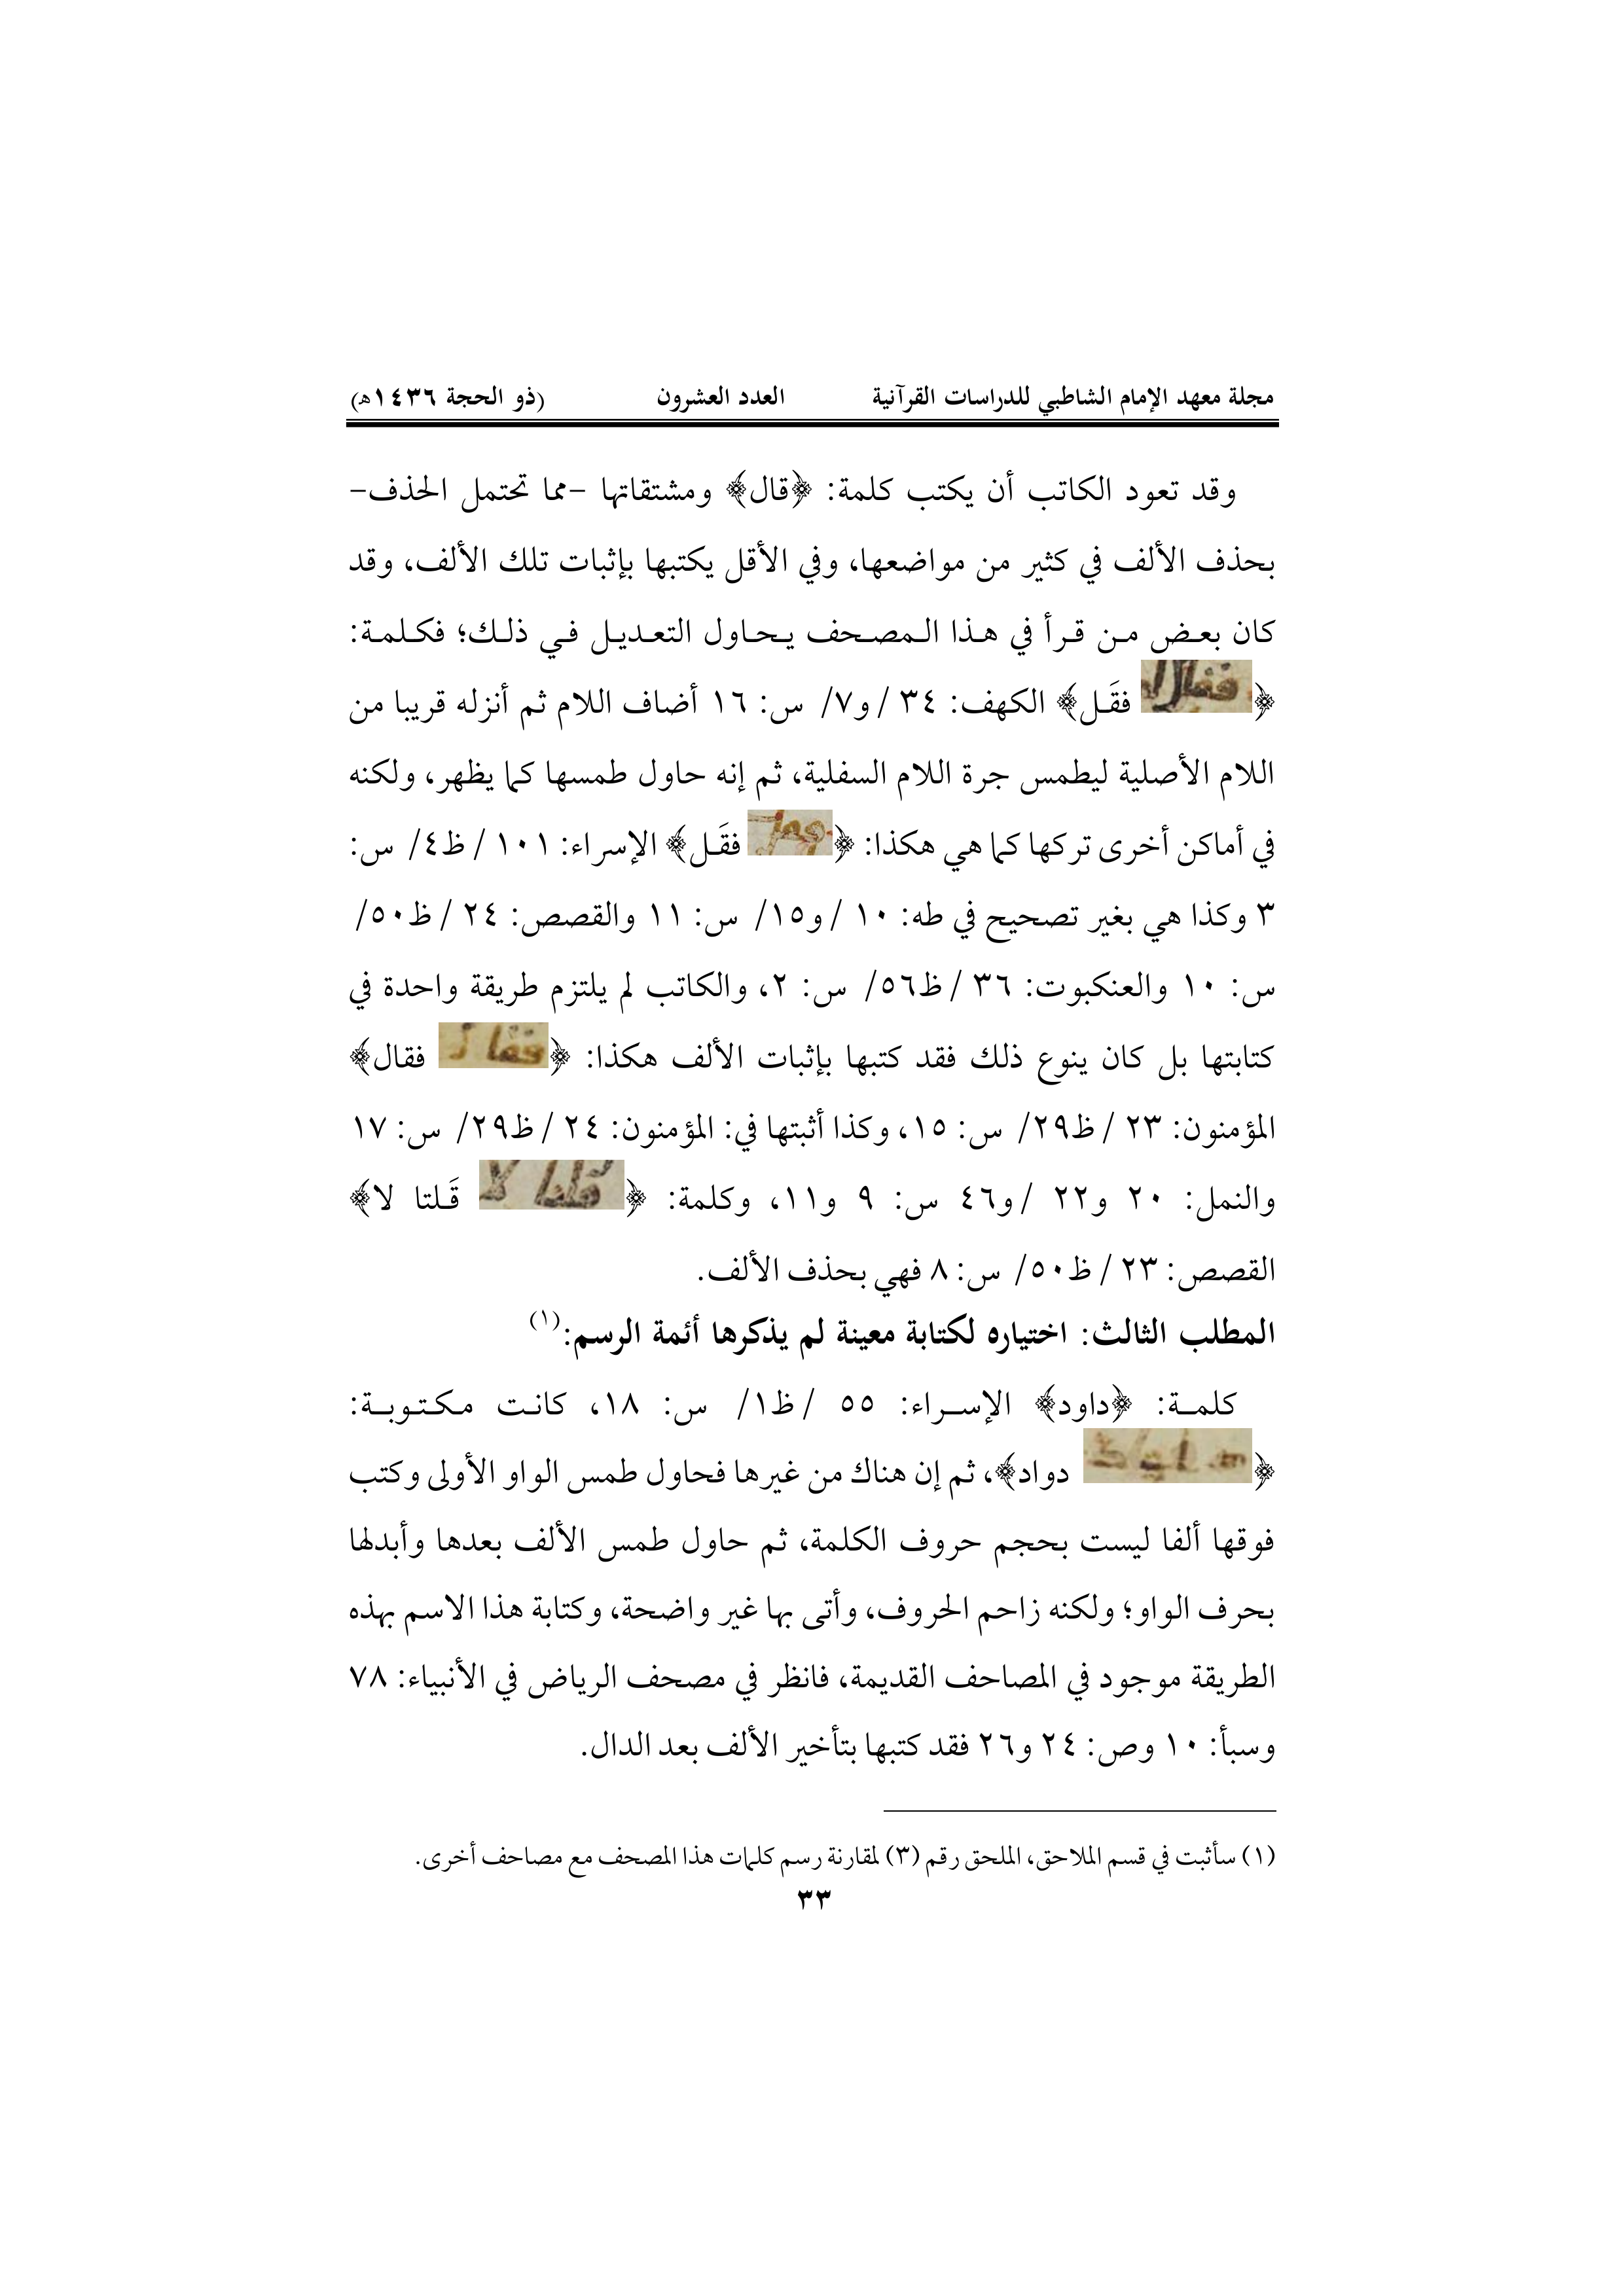 مجلة معهد الإمام الشاطبي للدراسات القرآنية العدد العشرون (ذو الحجة ١٤٣٦هـ)
وقد تعود الكاتب أن يكتب كلمة: ﴿قال﴾ ومشتقاتها -مما تحتمل الحذف-
بحذف الألف في كثير من مواضعها، وفي الأقل يكتبها بإثبات تلك الألف، وقد
كان بعـض مـن قـرأ في هـذا الـمصـحف يـحـاول التعـديـل فـي ذلـك؛ فكـلـمـة:
﴿ فقَـل﴾ الكهف: ٣٤ / و٧/ س: ١٦ أضاف اللام ثم أنزله قريبا من
اللام الأصلية ليطمس جرة اللام السفلية، ثم إنه حاول طمسها كما يظهر، ولكنه
في أماكن أخرى تركها كما هي هكذا: ﴿ فقَـل﴾ الإسراء: ١٠١ / ظ٤/ س:
٣ وكذا هي بغير تصحيح في طه: ١٠ / و١٥/ س: ١١ والقصص: ٢٤ / ظ٥٠/
س: ١٠ والعنكبوت: ٣٦ / ظ٥٦/ س: ٢، والكاتب لم يلتزم طريقة واحدة في
كتابتها بل كان ينوع ذلك فقد كتبها بإثبات الألف هكذا: ﴿ فقال﴾
المؤمنون: ٢٣ / ظ٢٩/ س: ١٥، وكذا أثبتها في: المؤمنون: ٢٤ / ظ٢٩/ س: ١٧
والنمل: ٢٠ و٢٢ / و٤٦ س: ٩ و١١، وكلمة: ﴿ قَـلتا لا﴾
القصص: ٢٣ / ظ٥٠/ س: ٨ فهي بحذف الألف.
المطلب الثالث: اختياره لكتابة معينة لم يذكرها أئمة الرسم:(١)
كلمـة: ﴿داود﴾ الإسـراء: ٥٥ / ظ١/ س: ١٨، كانـت مـكـتـوبـة:
﴿ دواد﴾، ثم إن هناك من غيرها فحاول طمس الواو الأولى وكتب
فوقها ألفا ليست بحجم حروف الكلمة، ثم حاول طمس الألف بعدها وأبدلها
بحرف الواو؛ ولكنه زاحم الحروف، وأتى بها غير واضحة، وكتابة هذا الاسم بهذه
الطريقة موجود في المصاحف القديمة، فانظر في مصحف الرياض في الأنبياء: ٧٨
وسبأ: ١٠ وص: ٢٤ و٢٦ فقد كتبها بتأخير الألف بعد الدال.
(١) سأثبت في قسم الملاحق، الملحق رقم (٣) لمقارنة رسم كلمات هذا المصحف مع مصاحف أخرى.
٣٣